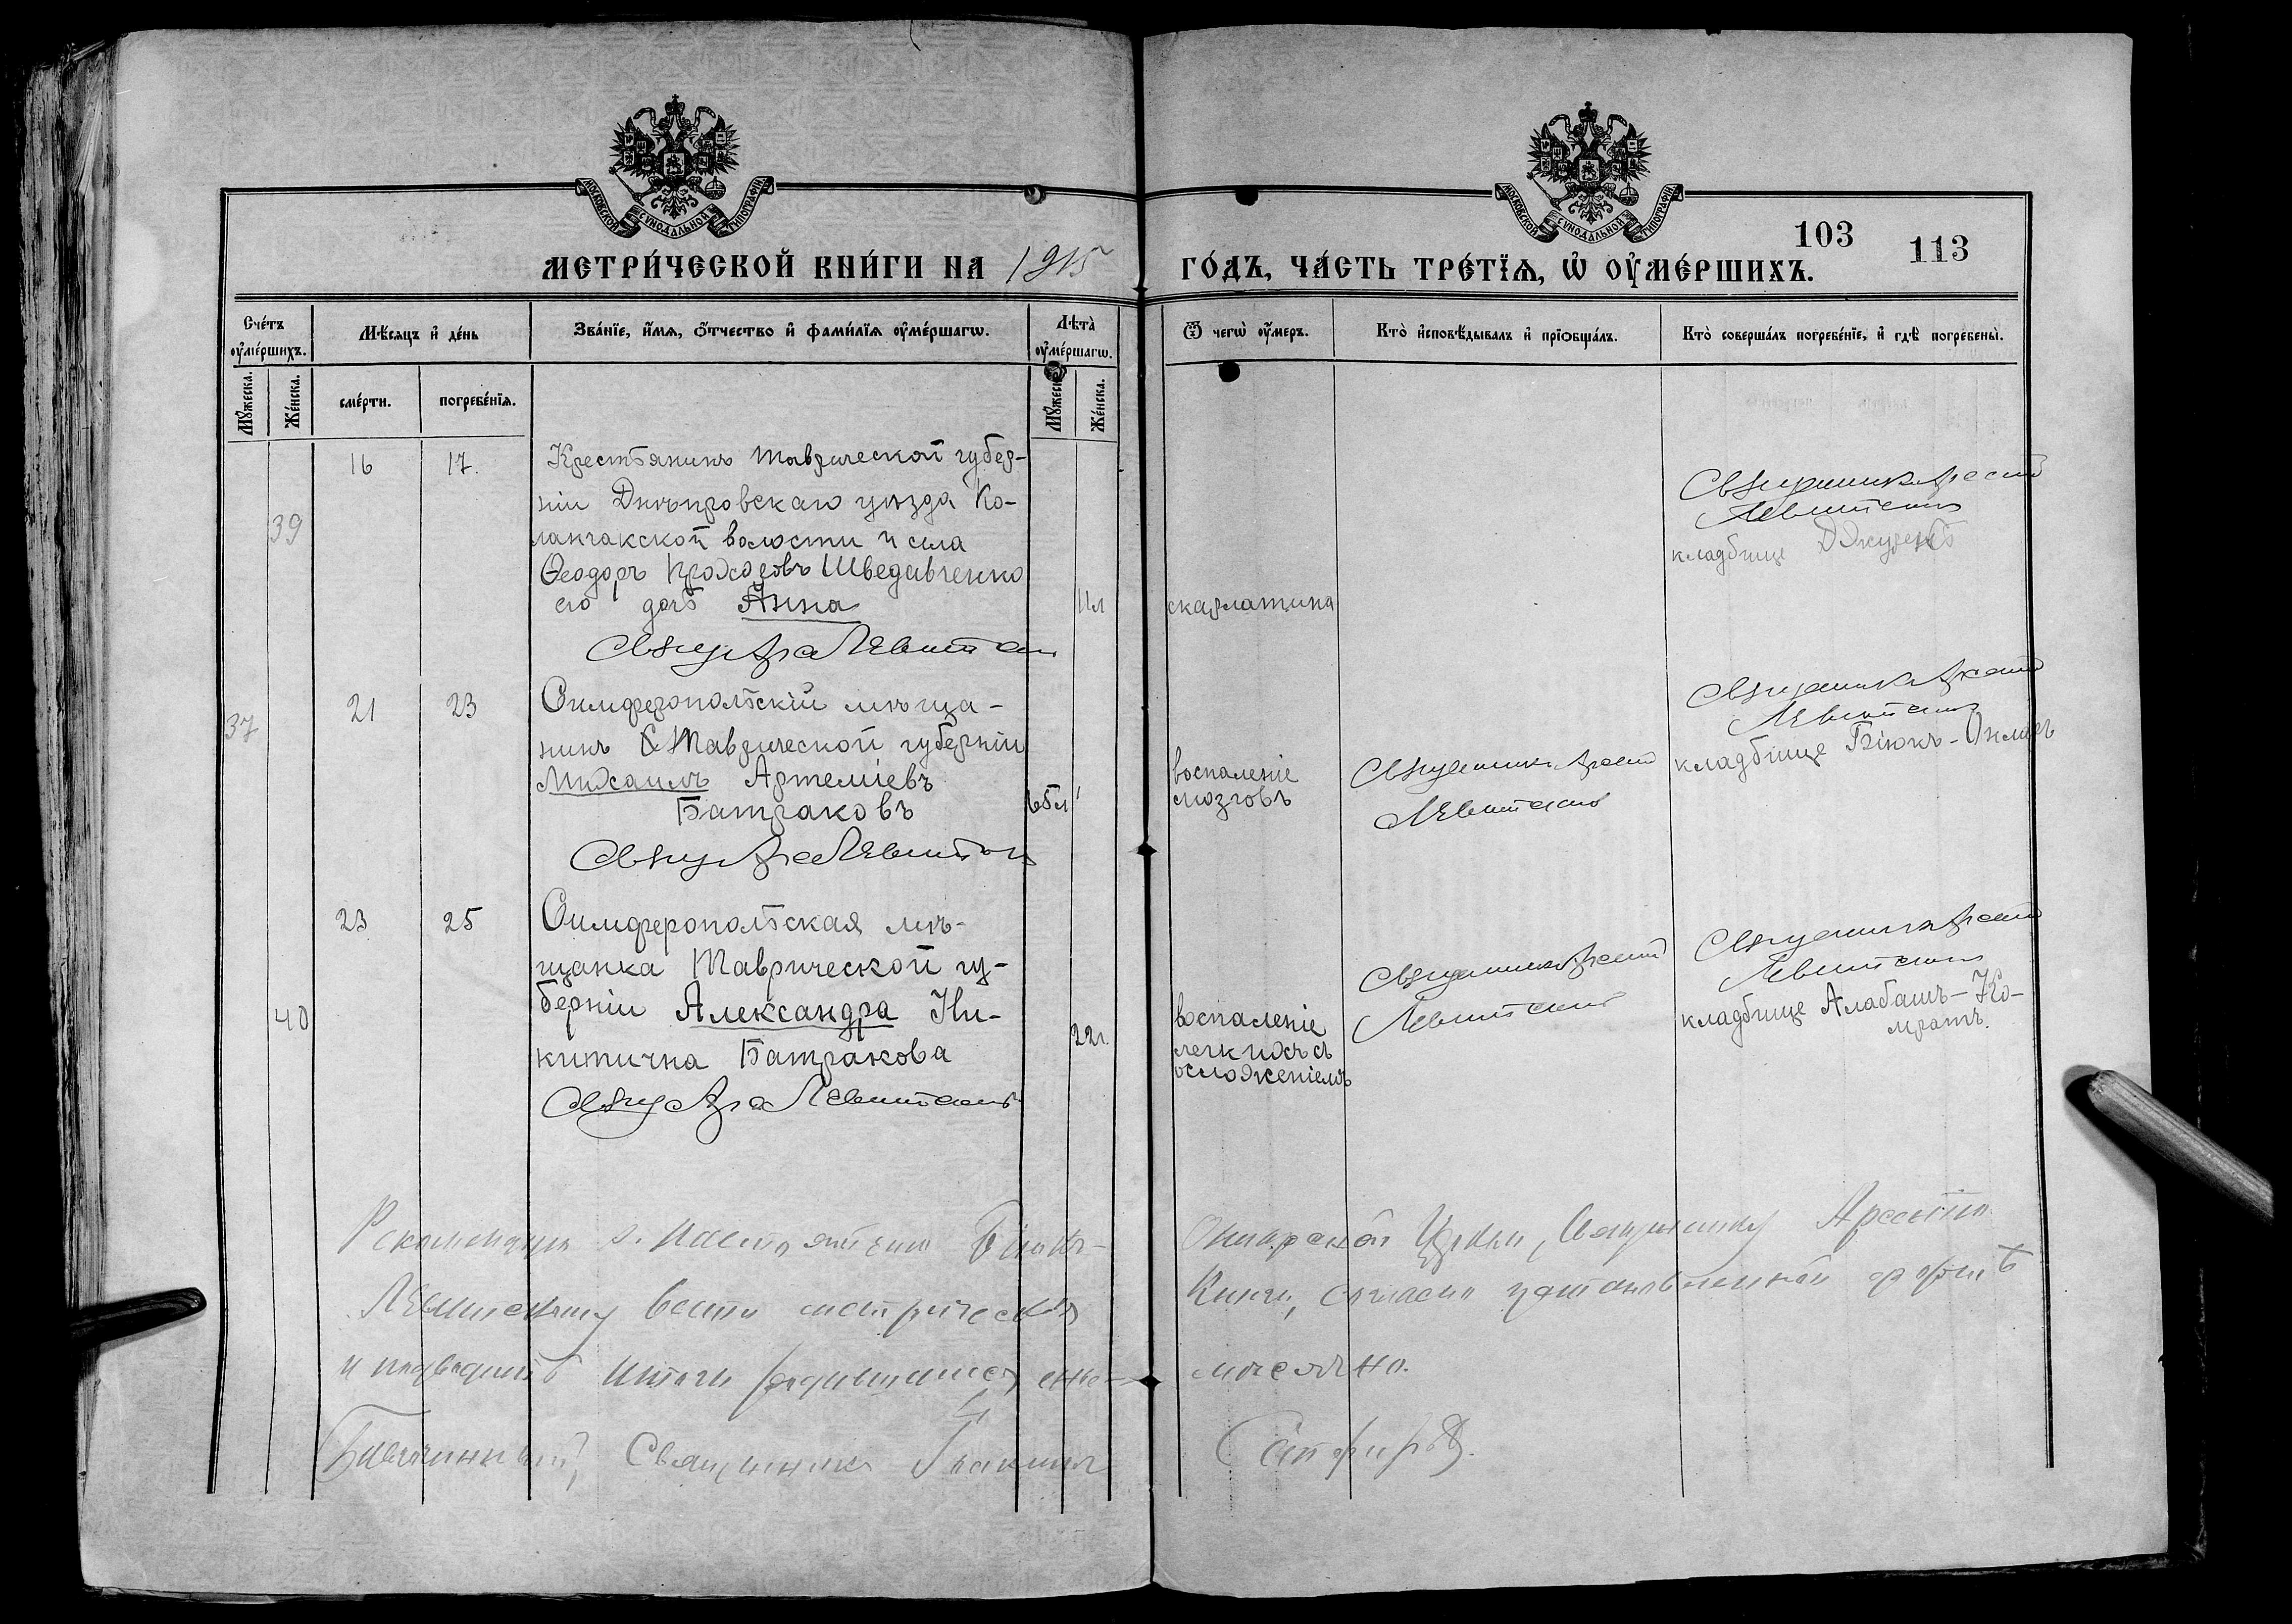 МОСКОВСКОЙ СѴНОДАЛЬНОЙ ТИПОГРАФІИ
МОСКОВСКОЙ СѴНОДАЛЬНОЙ ТИПОГРАФІИ
103 113
МЕТРИ́ЧЕСКОЙ КНИ́ГИ НА 1915 ГО́ДЪ, ЧА́СТЬ ТРЕ́ТЇѦ, Ѡ҆ ОУ҆МЕ́РШИХЪ.
Сче́тъ оу҆ме́ршихъ.
Мѣ́сѧцъ и҆ де́нь
Зва́нїе, и҆́мѧ, ѻ҆́тчество и҆ фами́лїѧ оу҆ме́ршагѡ.
Лѣта̀ оу҆ме́ршагѡ.
Ѿ чегѡ̀ оу҆́меръ.
Кто̀ и҆сповѣ́дывалъ и҆ прїѻбща́лъ.
Кто̀ соверша́лъ погребе́нїе, и҆ гдѣ̀ погребены̀.
Мꙋ́жеска.
Же́нска.
сме́рти.
погребе́нїѧ.
Мꙋ́жеска.
Же́нска.
39
16
17.
Крестьянинъ Таврической губер-
ніи Днѣпровскаго уѣзда Ко-
ланчакской волости и села
Ѳеодоръ Прохоровъ Шведавченко
его дочь Анна
Свящ Арс Левитскій
11л
скарлатина
Священникъ Арсеній
Левитскій
кладбище
37
21
23
Симферопольскій мѣща-
нинъ Таврической губерніи
Михаилъ Артеміевъ
Батраковъ
Свящ Арс Левитскій
воспаленіе
мозговъ
Священникъ Арсеній
Левитскій
Священникъ Арсеній
Левитскій
кладбище Біюкъ-Онларъ
40
23
25
Симферопольская мѣ-
щанка Таврической гу-
берніи Александра Ни-
китична Батракова
Свящ Арс Левитскій
22г.
воспаленіе
легкихъ съ
осложеніемъ
Священникъ Арсеній
Левитскій
Священникъ Арсеній
Левитскій
кладбище Алабашъ-Ко-
мратъ.
о. Настоятелю Біюкъ- Онларской Церкви, Священнику Арсенію
Левитскому вести метрическія Книги, согласно установленной формѣ
и подводить итоги родившихся еже- мѣсячно.
Благочинный, Священникъ